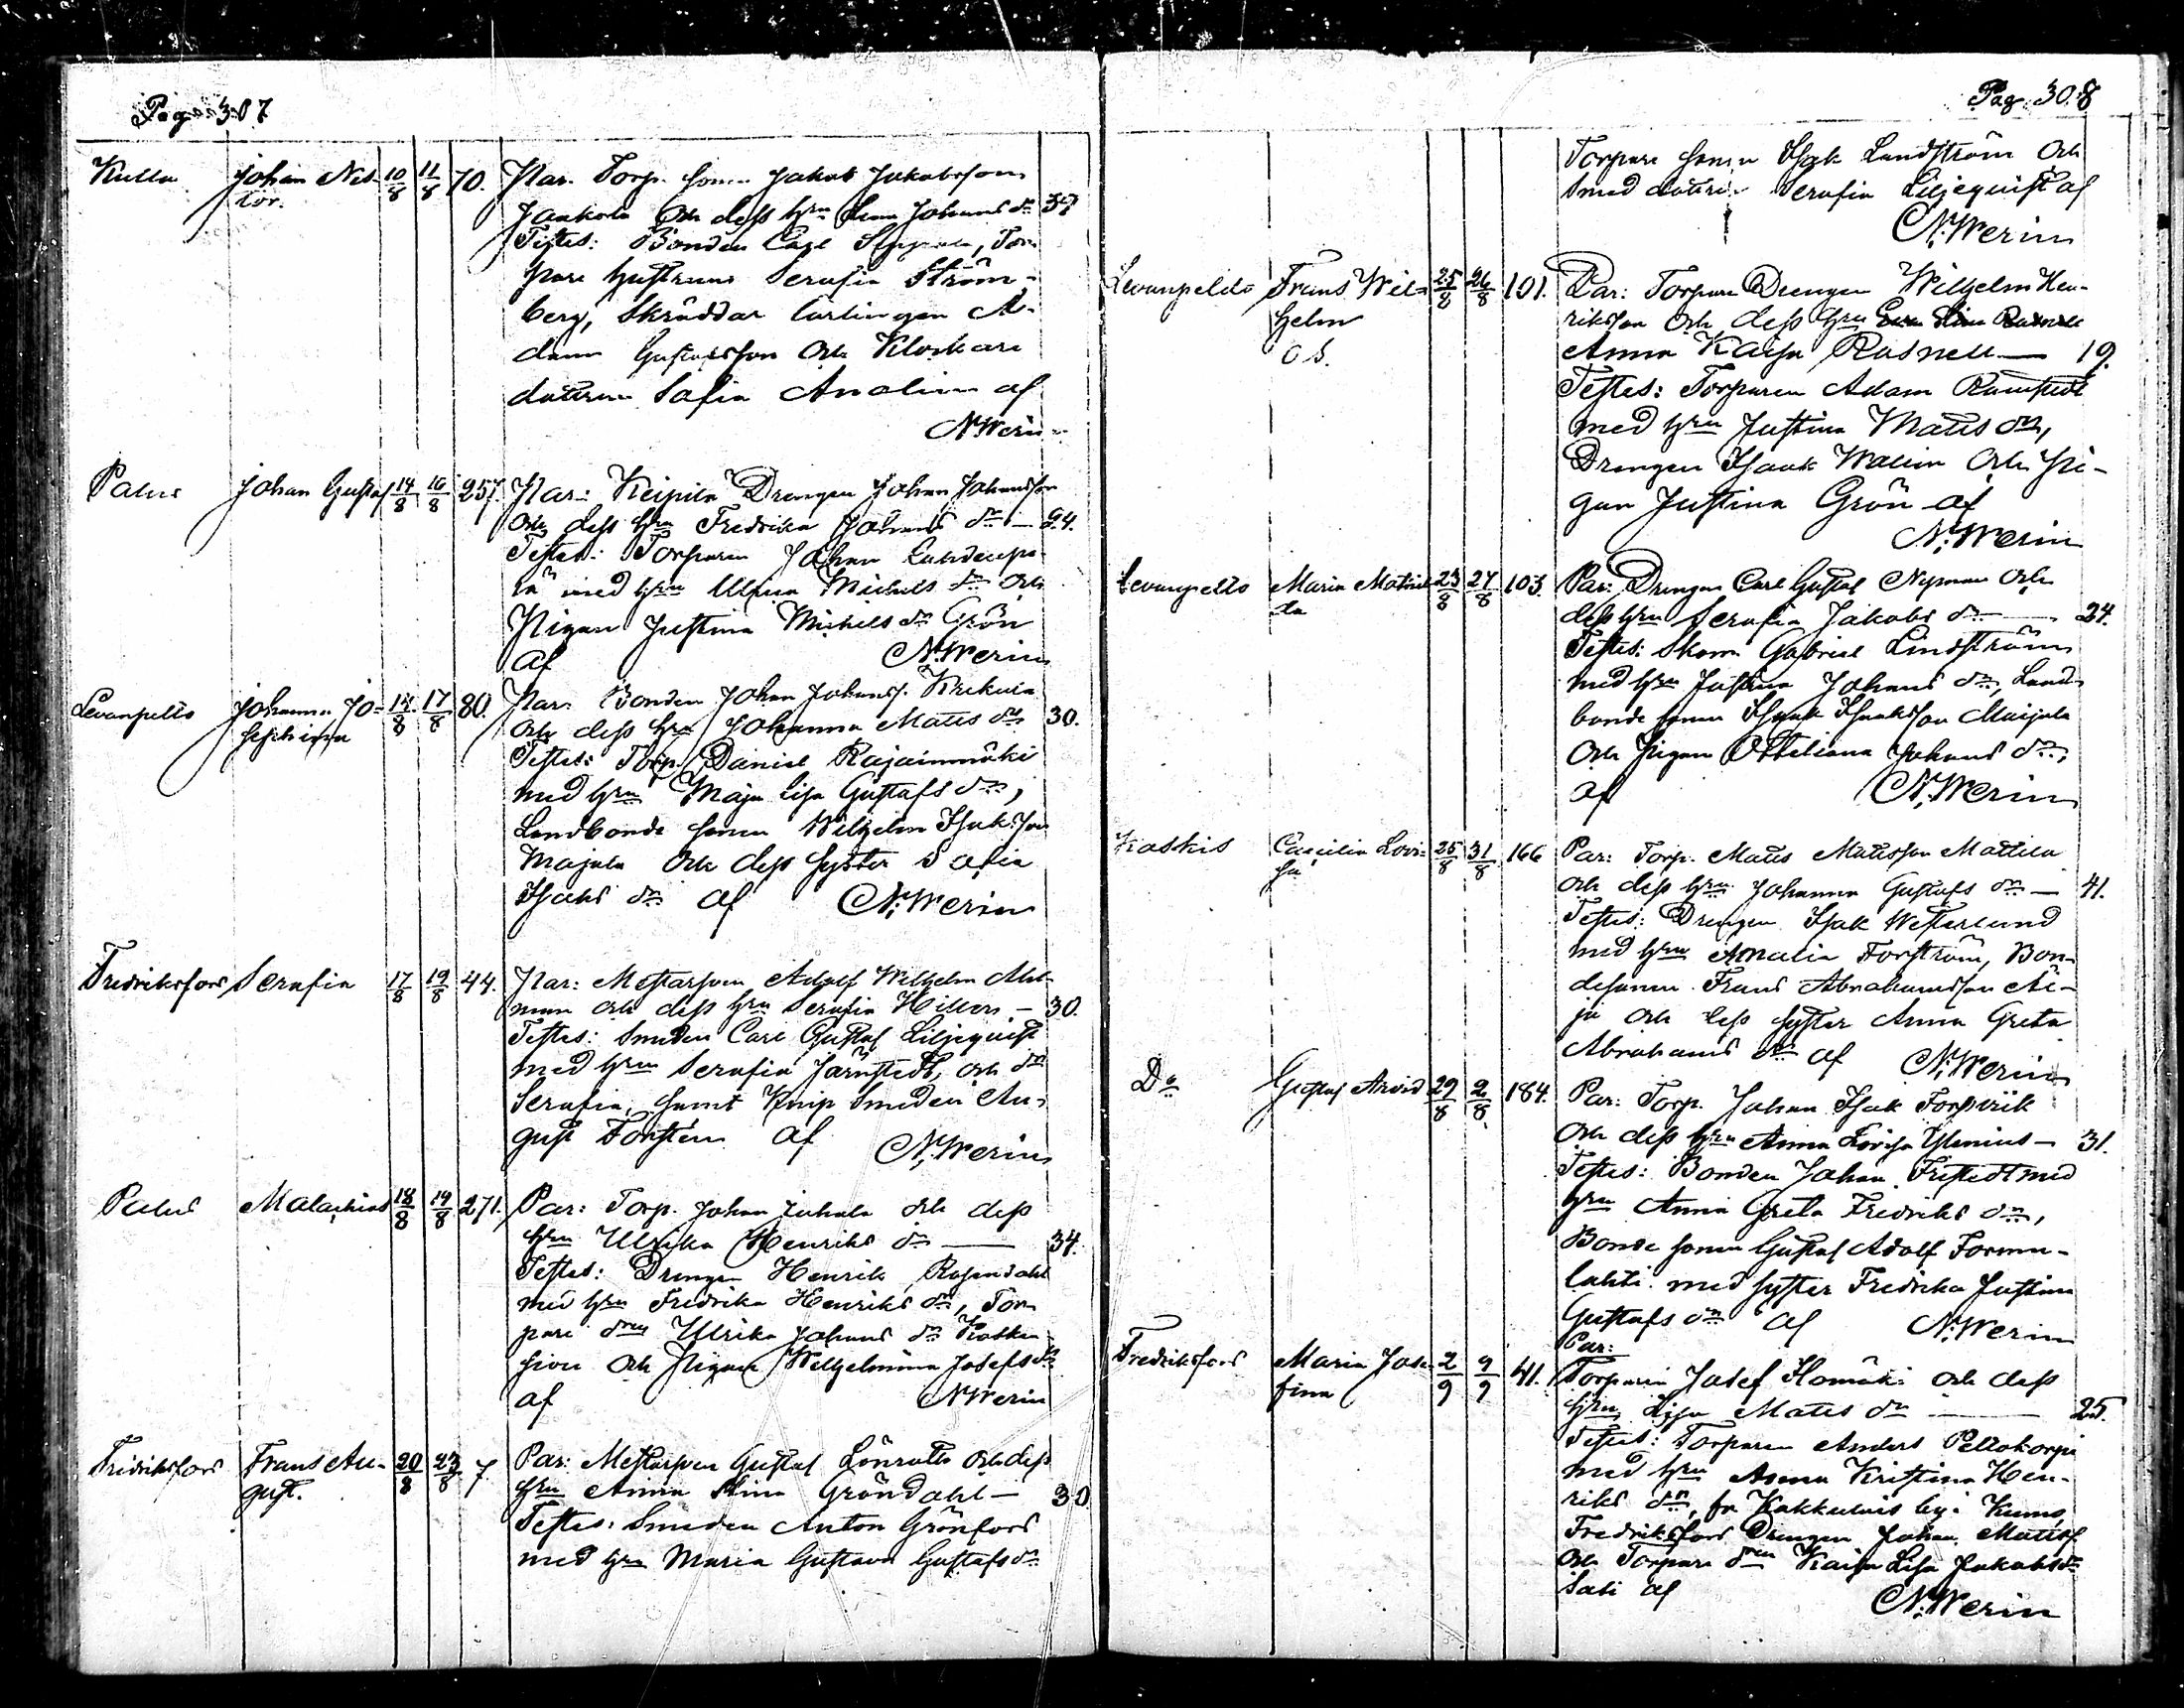 Pag. 307
Kulla Johan Nes- 10/8 11/8 70. Par. Torp. sonen Jakob Jakobsson
tor. Jankola Och dess hru Lena Johans dr 37
Testes: Bonden Carl, Tor-
pare hustruns Serafia Ström-
berg, Skräddar lärlingen A-
dam Gustafsson Och Klockare
dottren Sofia Analin af
N. Werin
Palus Johan Gustaf 14/8 16/8 257. Par: Keipila Drengen Johan Johansson
Och dess hru Fredrika Johans dr — 24.
Testes: Torparen Johan Lahdenpe-
rä med hru Ulrica Michels dr och
Pigan Justina Michels dr Grön
af N. Werin
Levanpelto Johanna Jo- 14/8 17/8 80. Par. Bonden Johan Johanss. Krekula
sephina Och dess hru Johanna Mats dr 30.
Testes: Torp. Daniel Rajainmäki
med hru Maja Lisa Gustafs dr,
Landbonde sonen Wilhelm Isaksson
Majala Och dess syster Sofia
Isaks dr af N. Werin
Fredriksfors Serafia 17/8 19/8 44. Par: Mästarsven Adolf Wilhelm Ahl-
man och dess hru Serafia Hillers — 30.
Testes: Smeden Carl Gustaf Liljeqvist
med hru Serafia Järnstedt, och dr
Serafia, samt Knip Smeden Au-
gust Forstén af N. Werin
Palus Malachias 18/8 19/8 271. Par: Torp. Johan Juhala och dess
hru Ulrika Henriks dr — 34.
Testes: Drengen Henrik Rosendahl
med hru Fredrika Henriks dr, Tor-
pare dren Ulrika Johans dr Kosken-
sivu Och Pigan Wilhelmina Josefs dr
af N. Werin
Fredriksfors Frans Au- 20/8 23/8 7. Par: Mästarsven Gustaf Lönroth Och dess
gust. hru Anna Stina Gröndahl — 30
Testes: Smeden Anton Grönfors
med hru Maria Gustava Gustafs dr
Pag. 308
Torpare sonen Isak Lundström Och
Smed dottren Serafia Liljeqvist af
N. Werin
Levanpelto Frans Wil- 25/8 26/8 101. Par: Torpare Drengen Wilhelm Hen-
helm riksson Och dess hru
o.b. Anna Kaisa Rosnell — 19.
Testes: Torparen Adam Ramstedt
med hru Justina Mats dr,
Drengen Isaak Wallin Och Pi-
gan Justina Grön af
N. Werin
Levanpelto Maria Matil- 23/8 27/8 103. Par: Drengen Carl Gustaf Nyman Och
da dess hru Serafia Jakobs dr — 24.
Testes: Skom. Gabriel Lindström
med hru Justina Johans dr, Land-
bonde sonen Isaak Isaksson Maijala
Och Pigan Ottiliana Johans dr,
af N. Werin
Koskis Caecilia Lovi- 25/8 31/8 166 Par: Torp. Mats Matsson Mattila
sa och dess hru Johanna Gustafs dr — 41.
Testes: Drengen Isak Westerlund
med hru Amalia Forström, Bon-
desonen Frans Abrahamsson Äi-
jä och dess syster Anna Greta
Abrahams dr af N. Werin
Do Gustaf Arvid 29/8 2/8. 184. Par: Torp. Johan Isak Forsvik
Och dess hru Anna Lovisa Ylenius — 31.
Testes: Bonden Johan Fristedt med
hru Anna Greta Fredriks dr,
Bonde sonen Gustaf Adolf Torvin-
lahti med syster Fredrika Justina
Gustafs dr af N. Werin
Par:
Fredriksfors Maria Jose- 2/9 9/9 41. Torparen Josef Homäki och dess
fina hru Lisa Mats dr — 25.
Testes: Torparen Anders Peltokorpi
med hru Anna Kristina Hen-
riks dr, fr Kakkulais by i Kumo,
Fredriksfors Drengen Johan Matss.
Och Torpare dren Kaisa Lisa Jakobs dr
Sali af N. Werin